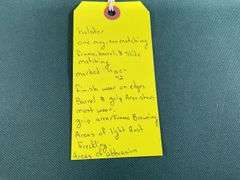 holster
one mag, non matching
frame, barrel, & slide
matching
marked "
42
finish wear on edges
Barrel & grip Area shows
most wear,
grip area/Frame Browning
Areas of light Rust
freckling
Areas of